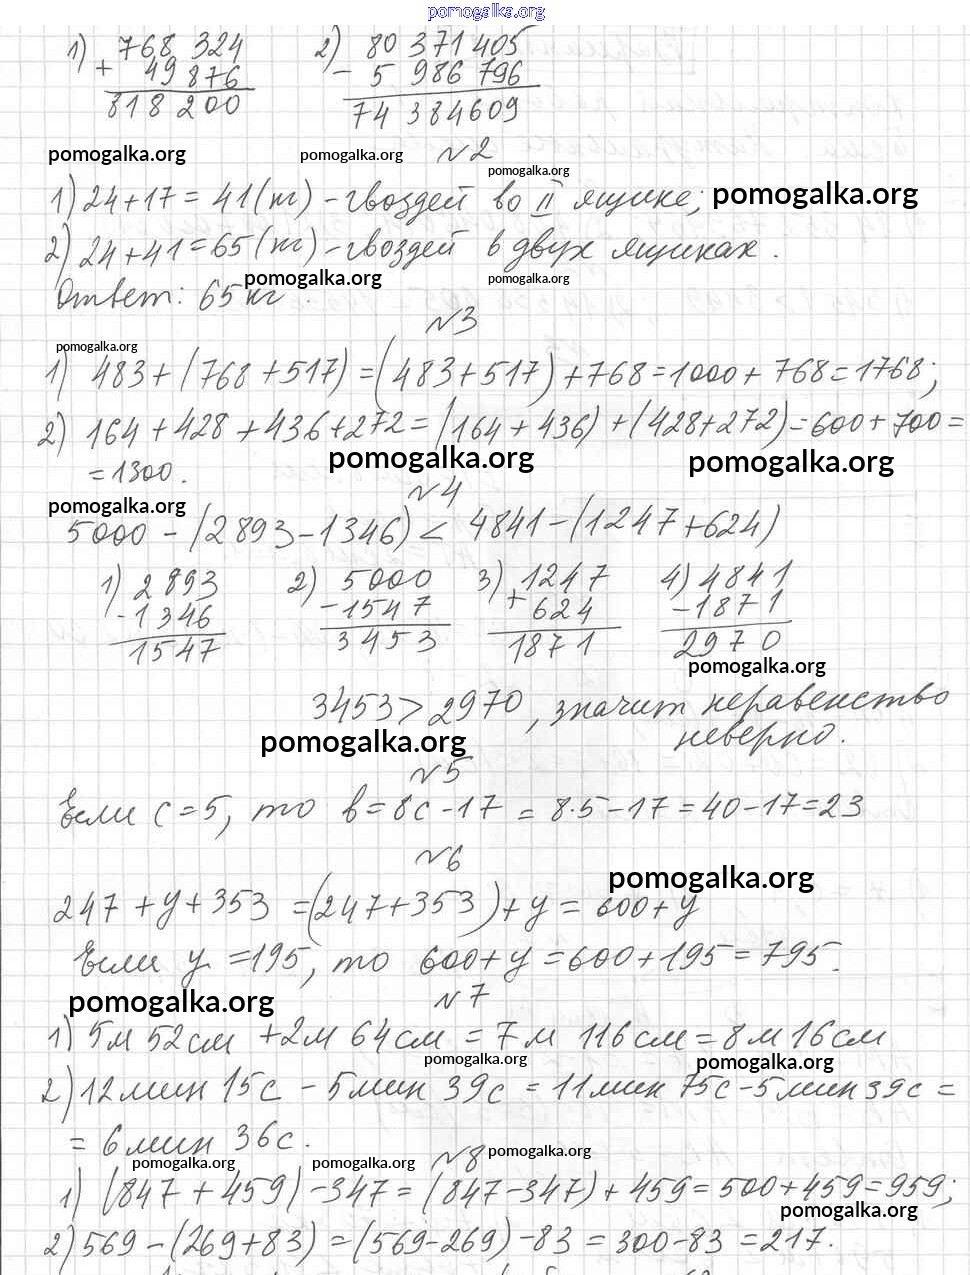 pomogalka.org
1) 768 324 2) 80 371 405
+ 49 876 - 5 986 796
818 200 74 384609
pomogalka.org pomogalka.org №2
pomogalka.org
1) 24+17=41(кг) - гвоздей во II ящике; pomogalka.org
2) 24+41=65(кг) - гвоздей в двух ящиках.
pomogalka.org pomogalka.org
Ответ: 65 кг.
№3
pomogalka.org
1) 483+(768+517)=(483+517)+768=1000+768=1768;
2) 164+428+436+272=(164+436)+(428+272)=600+700=
=1300. pomogalka.org pomogalka.org
№4
pomogalka.org
5000-(2893-1346)<4841-(1247+624)
1) 2893 2) 5000 3) 1247 4) 4841
-1346 -1547 + 624 -1871
1547 3453 1871 2970
pomogalka.org
3453>2970, значит неравенство
неверно.
pomogalka.org
№5
Если c=5, то b=8c-17=8·5-17=40-17=23
№6
pomogalka.org
247+y+353=(247+353)+y=600+y
Если y=195, то 600+y=600+195=795.
pomogalka.org №7
1) 5м 52см+2м 64см=7м 116см=8м16см
pomogalka.org pomogalka.org
2) 12мин 15с - 5мин 39с = 11мин 75с-5мин39с=
=6мин 36с.
№8 pomogalka.org
pomogalka.org pomogalka.org
1) (847+459)-347=(847-347)+459=500+459=959;
pomogalka.org
2) 569-(269+83)=(569-269)-83=300-83=217.